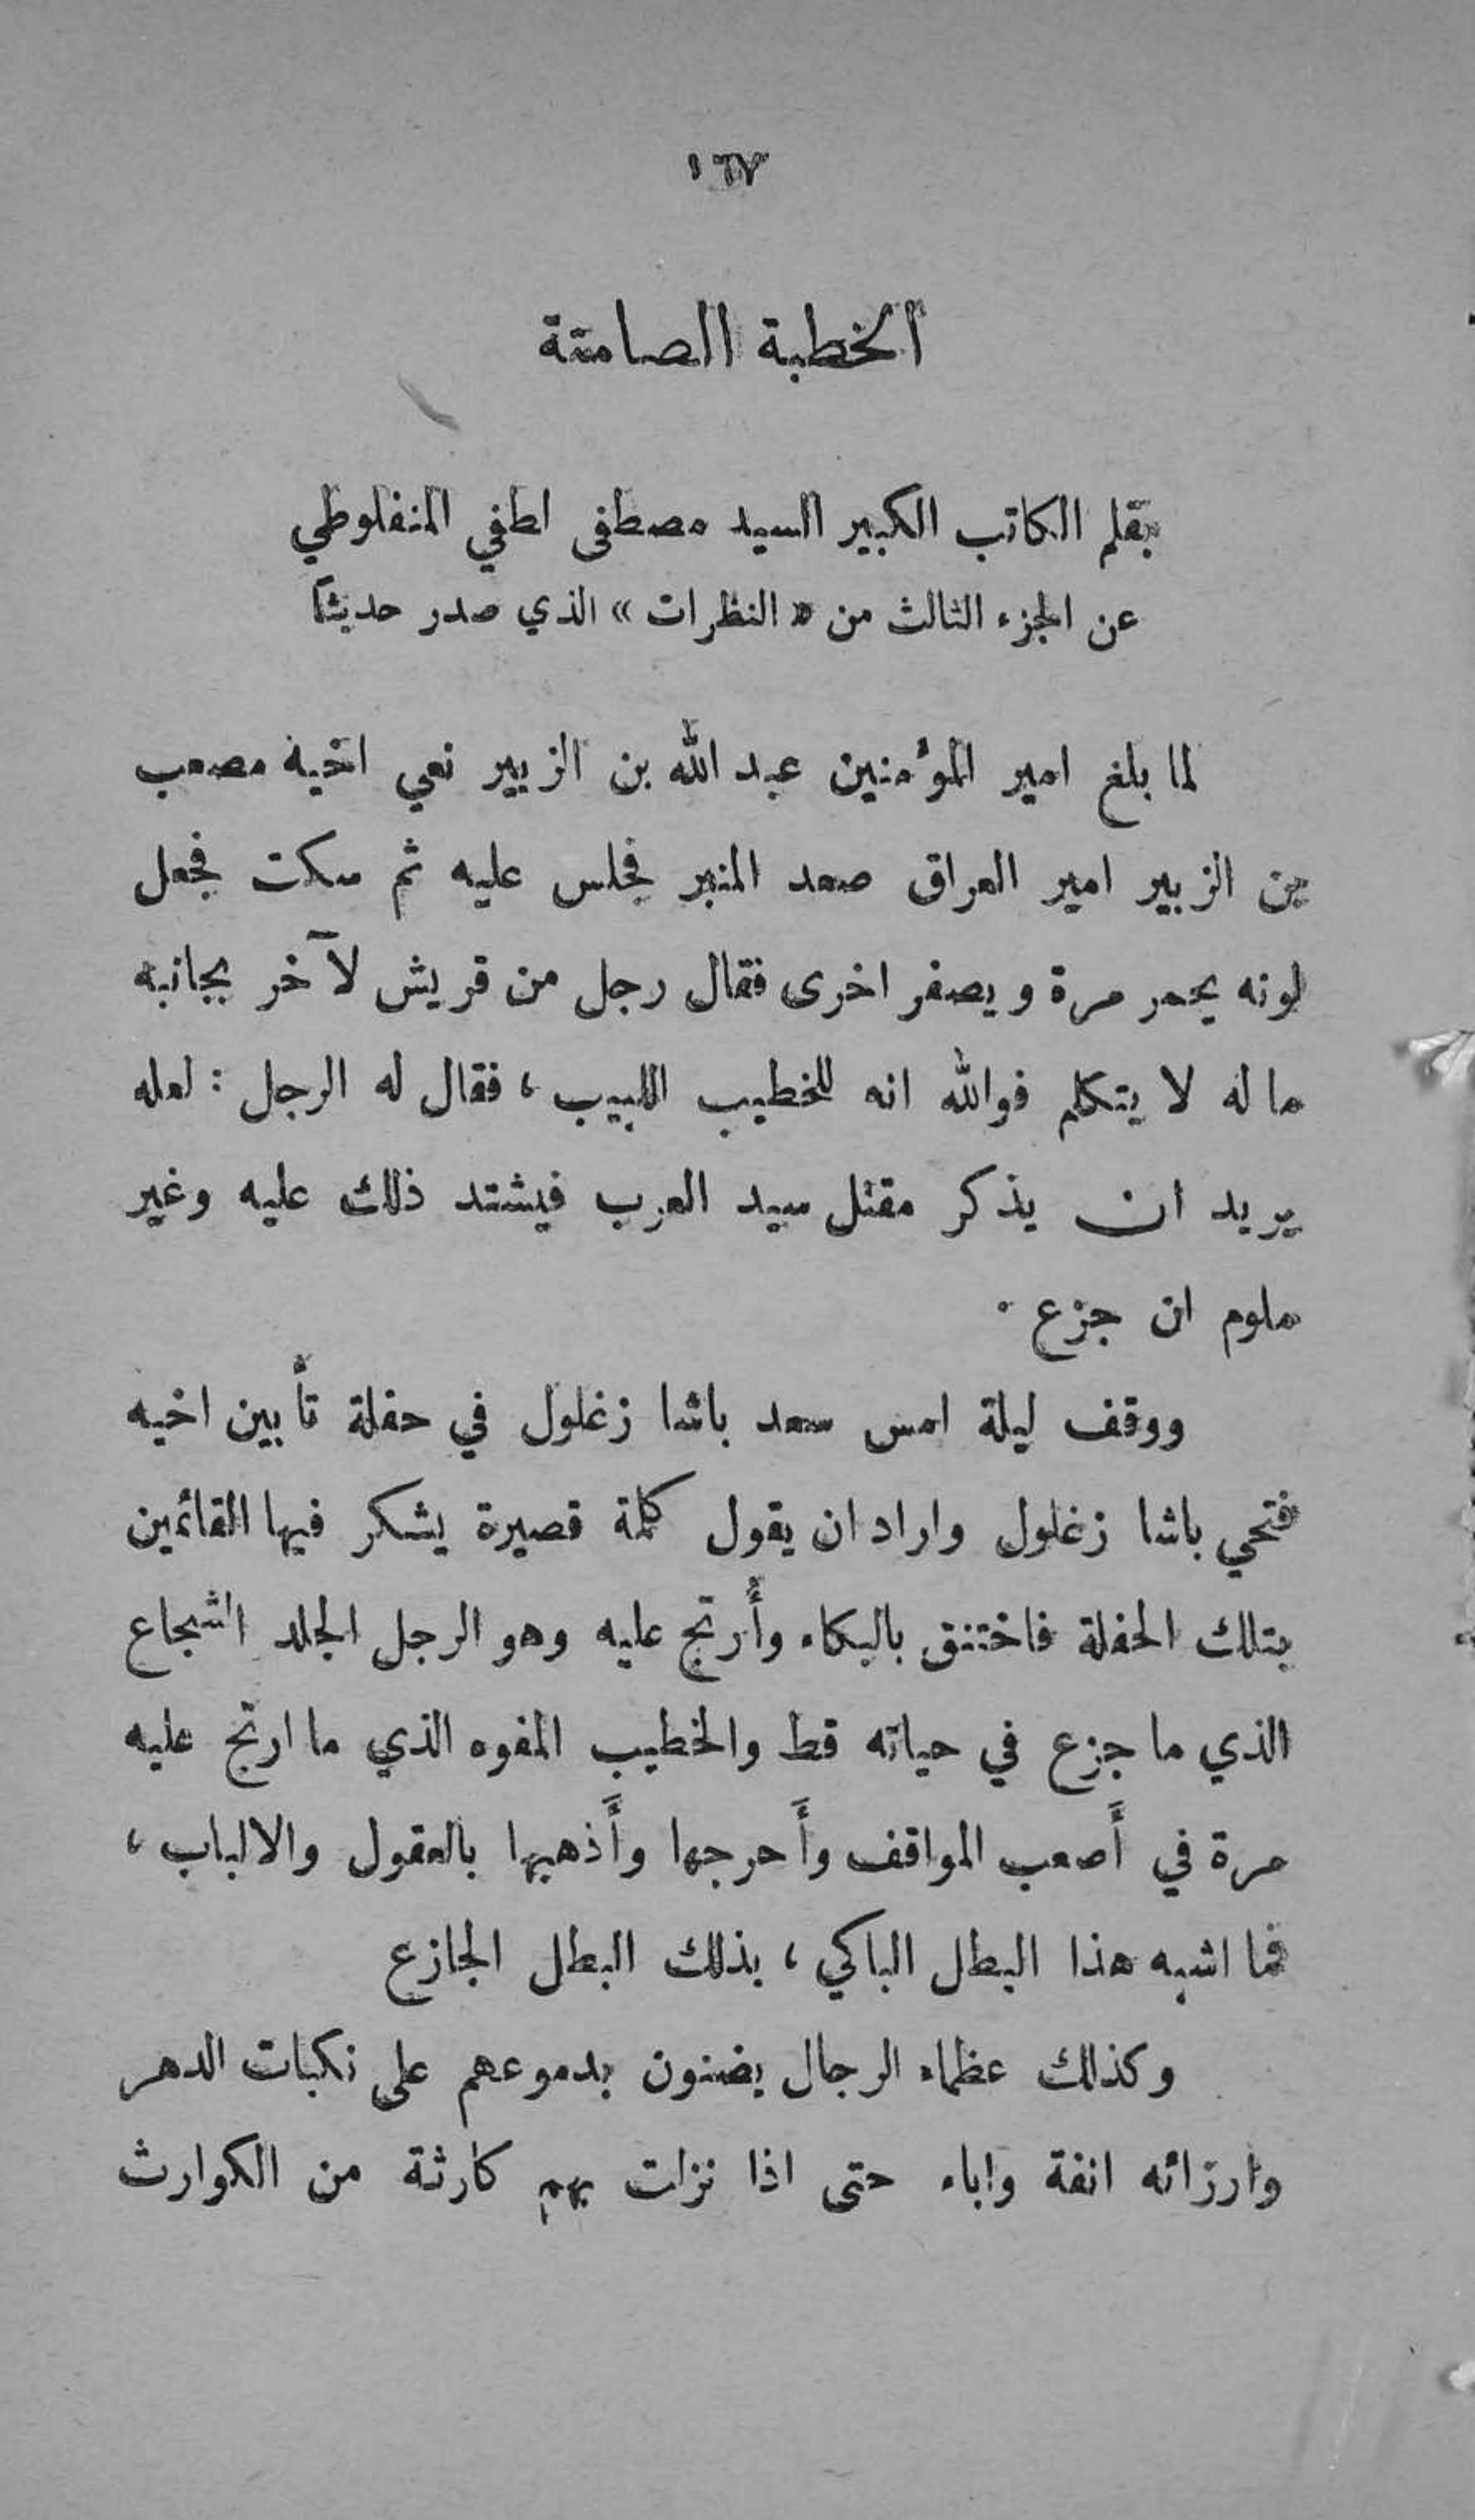 ١٦٧
الخطبة الصامتة
بقلم الكاتب الكبير السيد مصطفى لطفي المنفلوطي
عن الجزء الثالث من « النظرات » الذي صدر حديثاً
لما بلغ امير المؤمنين عبد الله بن الزبير نعي اخيه مصعب
بن الزبير امير العراق صعد المنبر فجلس عليه ثم سكت فجعل
لونه يحمر مرة ويصفر اخرى فقال رجل من قريش لآخر بجانبه
ما له لا يتكلم فوالله انه للخطيب اللبيب ، فقال له الرجل : لعله
يريد ان يذكر مقتل سيد العرب فيشتد ذلك عليه وغير
ملوم ان جزع .
ووقف ليلة امس سعد باشا زغلول في حفلة تأبين اخيه
فتحي باشا زغلول واراد ان يقول كلمة قصيرة يشكر فيها القائمين
بتلك الحفلة فاختنق بالبكاء وأُرتج عليه وهو الرجل الجلد الشجاع
الذي ما جزع في حياته قط والخطيب المفوه الذي ما ارتج عليه
مرة في أَصعب المواقف وأَحرجها وأَذهبها بالعقول والالباب ،
فما اشبه هذا البطل الباكي ، بذلك البطل الجازع
وكذلك عظماء الرجال يضنون بدموعهم على نكبات الدهر
وارزائه انفة واباء حتى اذا نزلت بهم كارثة من الكوارث